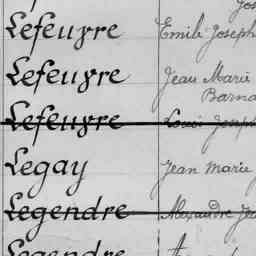 Jos
Lefeuvre Emile Joseph
Lefeuvre Jean Marie
Barna
Lefeuvre Louis Joseph
Legay Jean Marie
Legendre Alexandre Je
Legendre